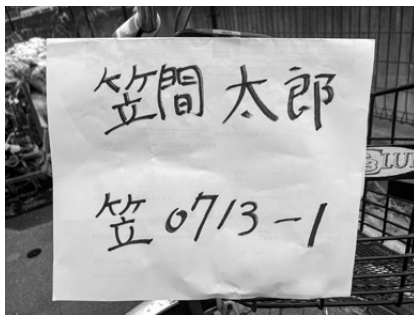 笠間 太郎
笠 0713-1